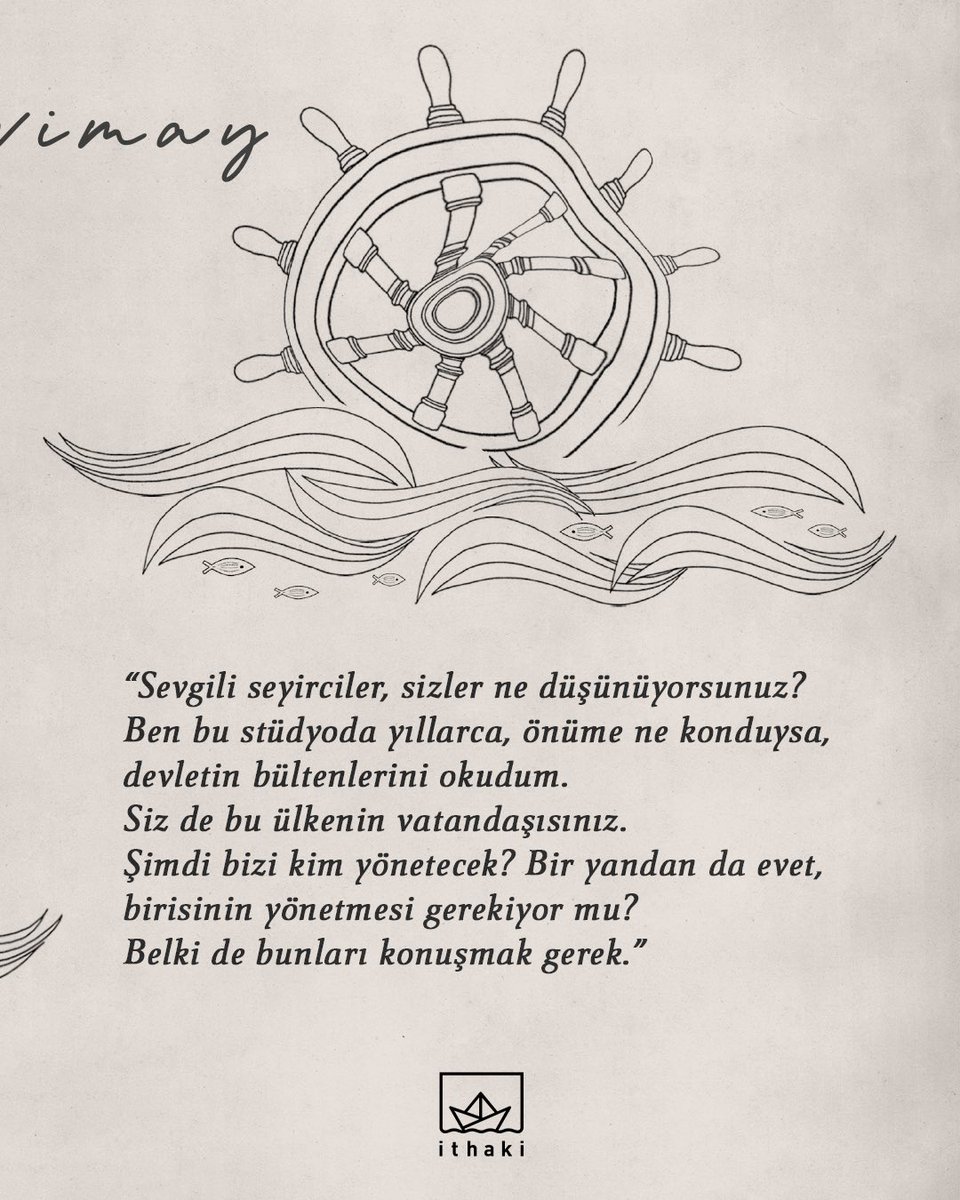 vimay
“Sevgili seyirciler, sizler ne düşünüyorsunuz?
Ben bu stüdyoda yıllarca, önüme ne konduysa,
devletin bültenlerini okudum.
Siz de bu ülkenin vatandaşısınız.
Şimdi bizi kim yönetecek? Bir yandan da evet,
birisinin yönetmesi gerekiyor mu?
Belki de bunları konuşmak gerek.”
ithaki